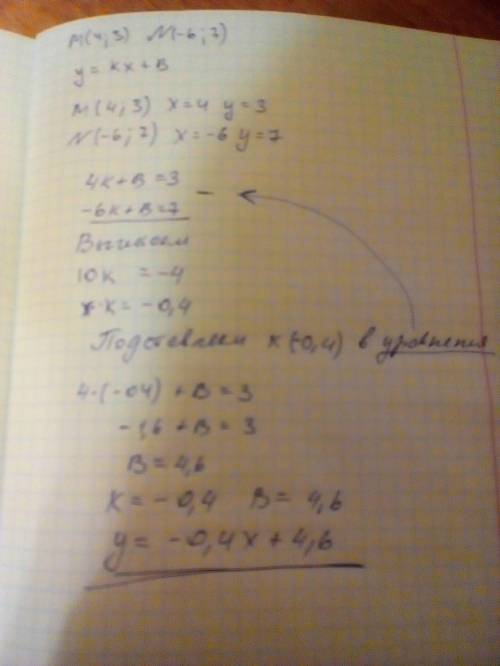 M(4;3) N(-6;7)
y = kx + B
M(4;3) x=4 y=3
N(-6;7) x=-6 y=7
4k+B=3
-6k+B=7 -
Вычитаем
10k = -4
k = -0,4
Подставляем k(-0,4) в уровнения
4·(-04) + B = 3
-1,6 + B = 3
B = 4,6
k = -0,4 B = 4,6
y = -0,4x + 4,6